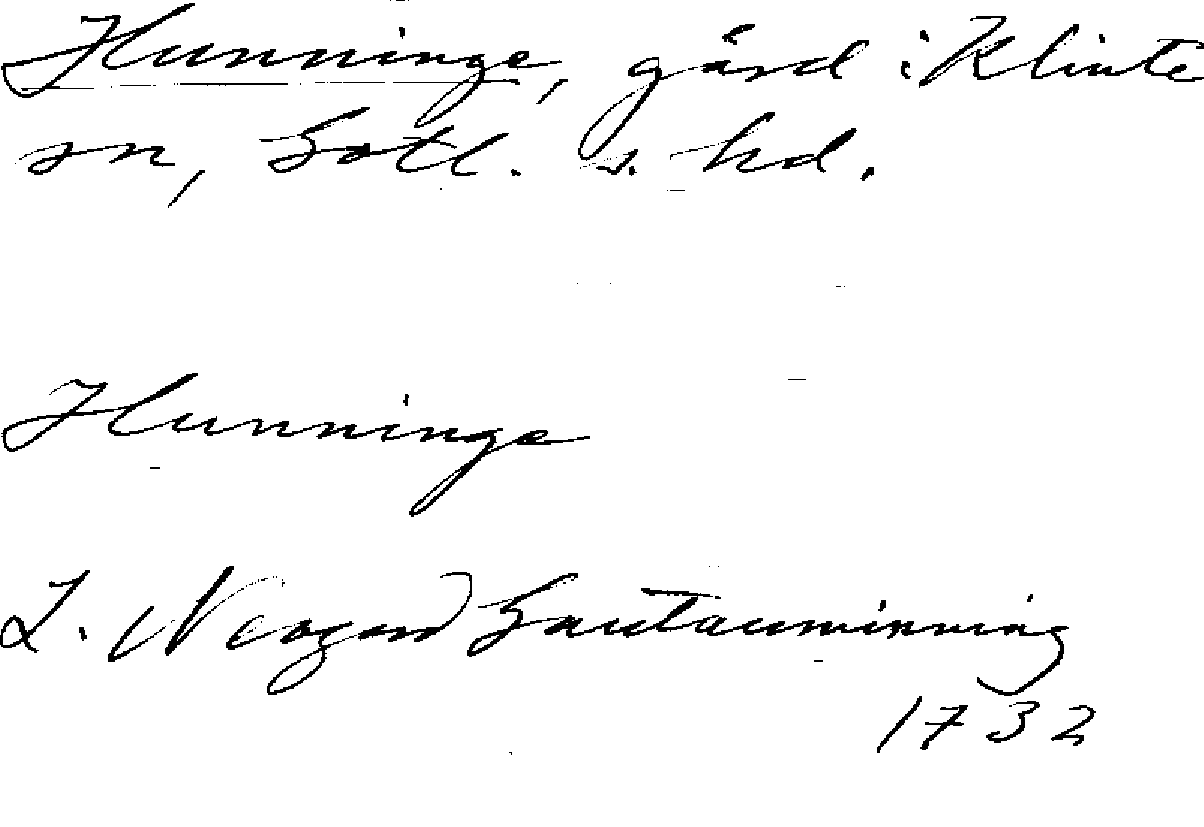 Hunninge, gård i Klinte
sn, Gotl. s. hd.
Hunninge
L. Neogard Gautauminning
1732